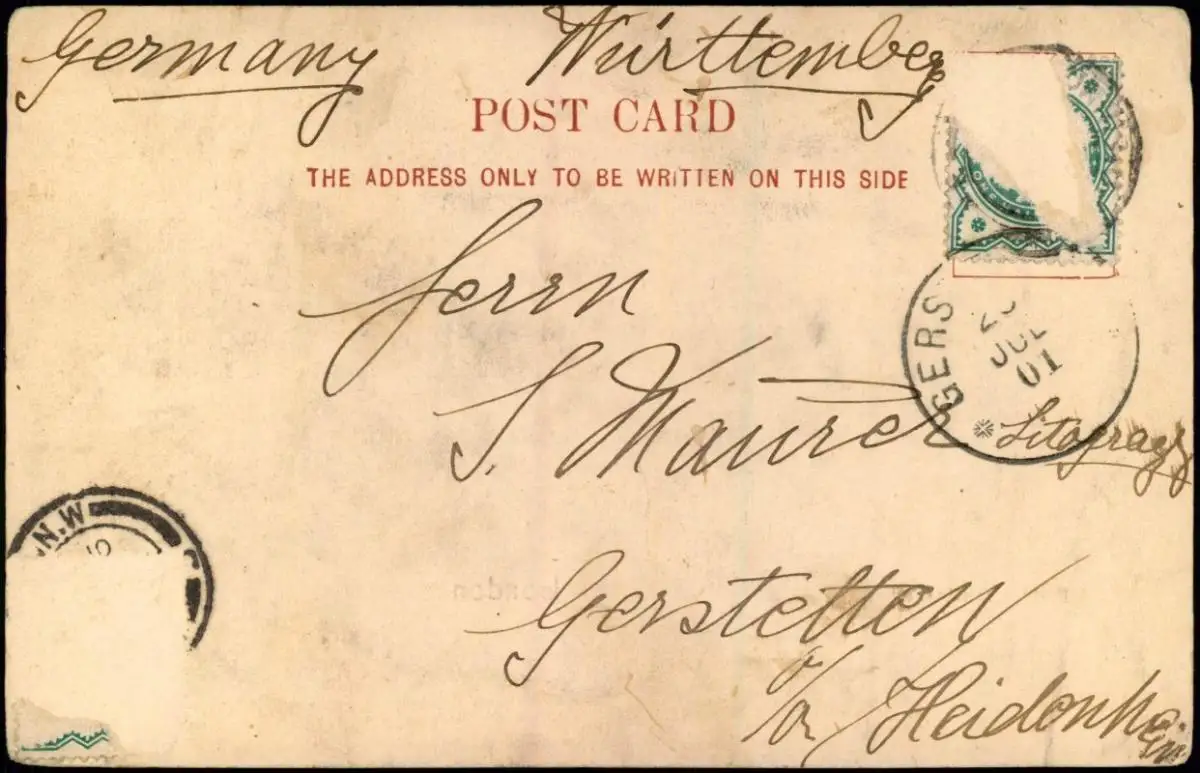 Germany Württemberg
POST CARD
THE ADDRESS ONLY TO BE WRITTEN ON THIS SIDE
Herrn
GERS
JUL
01
S. Maurer
Litograph
N.W
Gerstetten
o/r Heidenheim